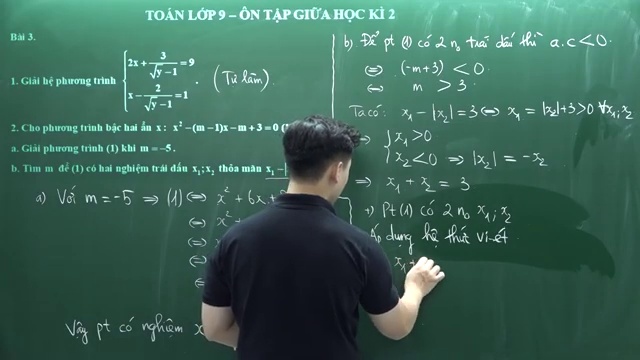 TOÁN LỚP 9 – ÔN TẬP GIỮA HỌC KÌ 2
Bài 3.
1. Giải hệ phương trình { 2x + 3/(√y − 1) = 9
x − 2/(√y − 1) = 1 . (Tự làm)
2. Cho phương trình bậc hai ẩn x : x² − (m − 1)x − m + 3 = 0
a. Giải phương trình (1) khi m = −5.
b. Tìm m để (1) có hai nghiệm trái dấu x₁; x₂ thỏa mãn x₁ −
a) Với m = −5 ⇒ (1) ⇔ x² + 6x
⇔ x² +
⇔
⇔
Vậy pt có nghiệm x
b) Để pt (1) có 2 n₀ trái dấu thì a.c < 0.
⇔ (−m+3) < 0
⇔ m > 3
Ta có: x₁ − |x₂| = 3 ⇔ x₁ = |x₂| + 3 > 0 ∀x₁; x₂
⇒ { x₁ > 0
x₂ < 0 ⇒ |x₂| = −x₂
⇒ x₁ + x₂ = 3
+) Pt (1) có 2 n₀ x₁; x₂
Áp dụng hệ thức vi-ét
x₁ +